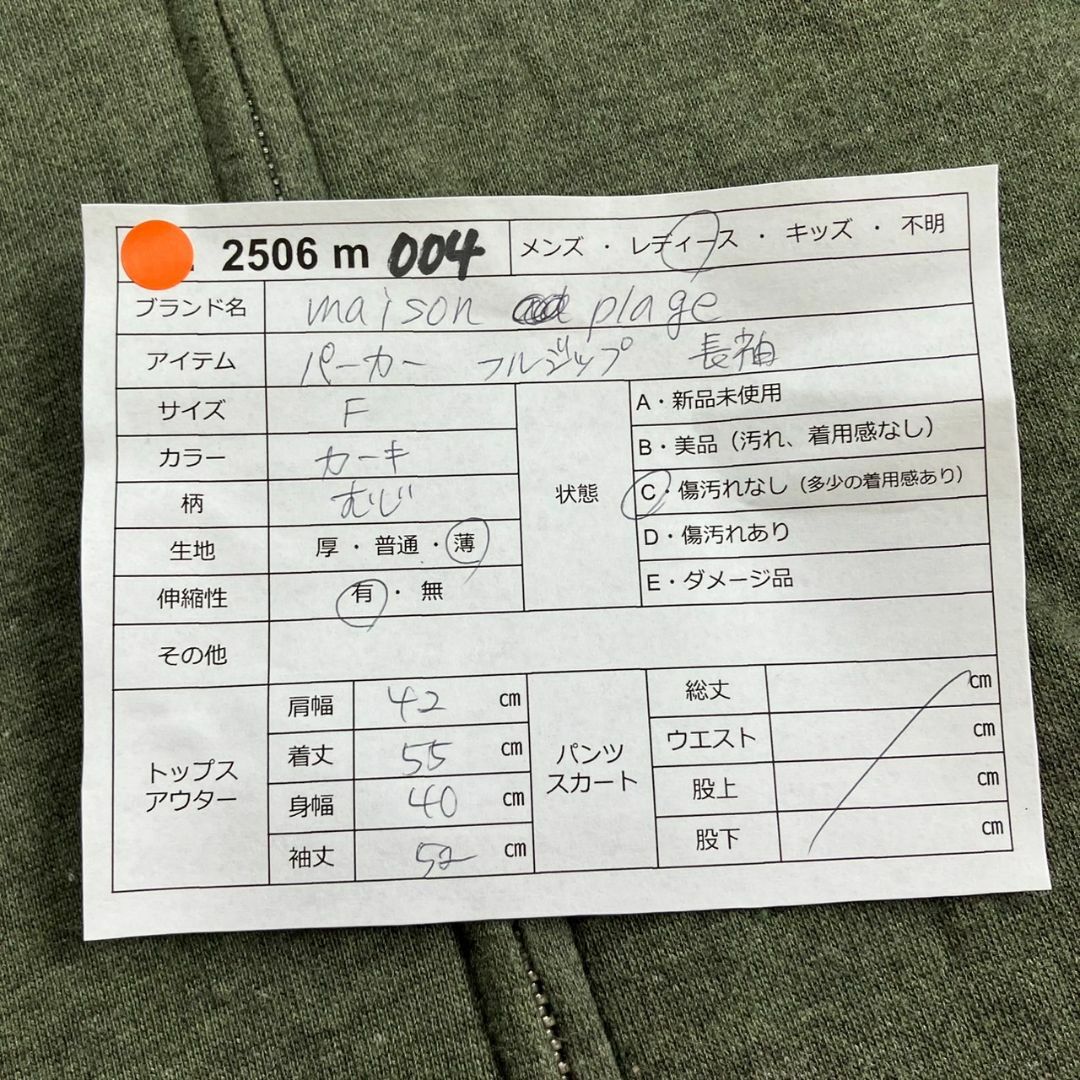 2506 m 004 メンズ ・ レディース ・ キッズ ・ 不明
ブランド名 maison plage
アイテム パーカー フルジップ 長袖
サイズ F
カラー カーキ
柄 むじ
生地 厚 ・ 普通 ・ 薄
伸縮性 有 ・ 無
状態
A・新品未使用
B・美品（汚れ、着用感なし）
C・傷汚れなし（多少の着用感あり）
D・傷汚れあり
E・ダメージ品
その他
トップス
アウター
肩幅 42 cm
着丈 55 cm
身幅 40 cm
袖丈 52 cm
パンツ
スカート
総丈 cm
ウエスト cm
股上 cm
股下 cm